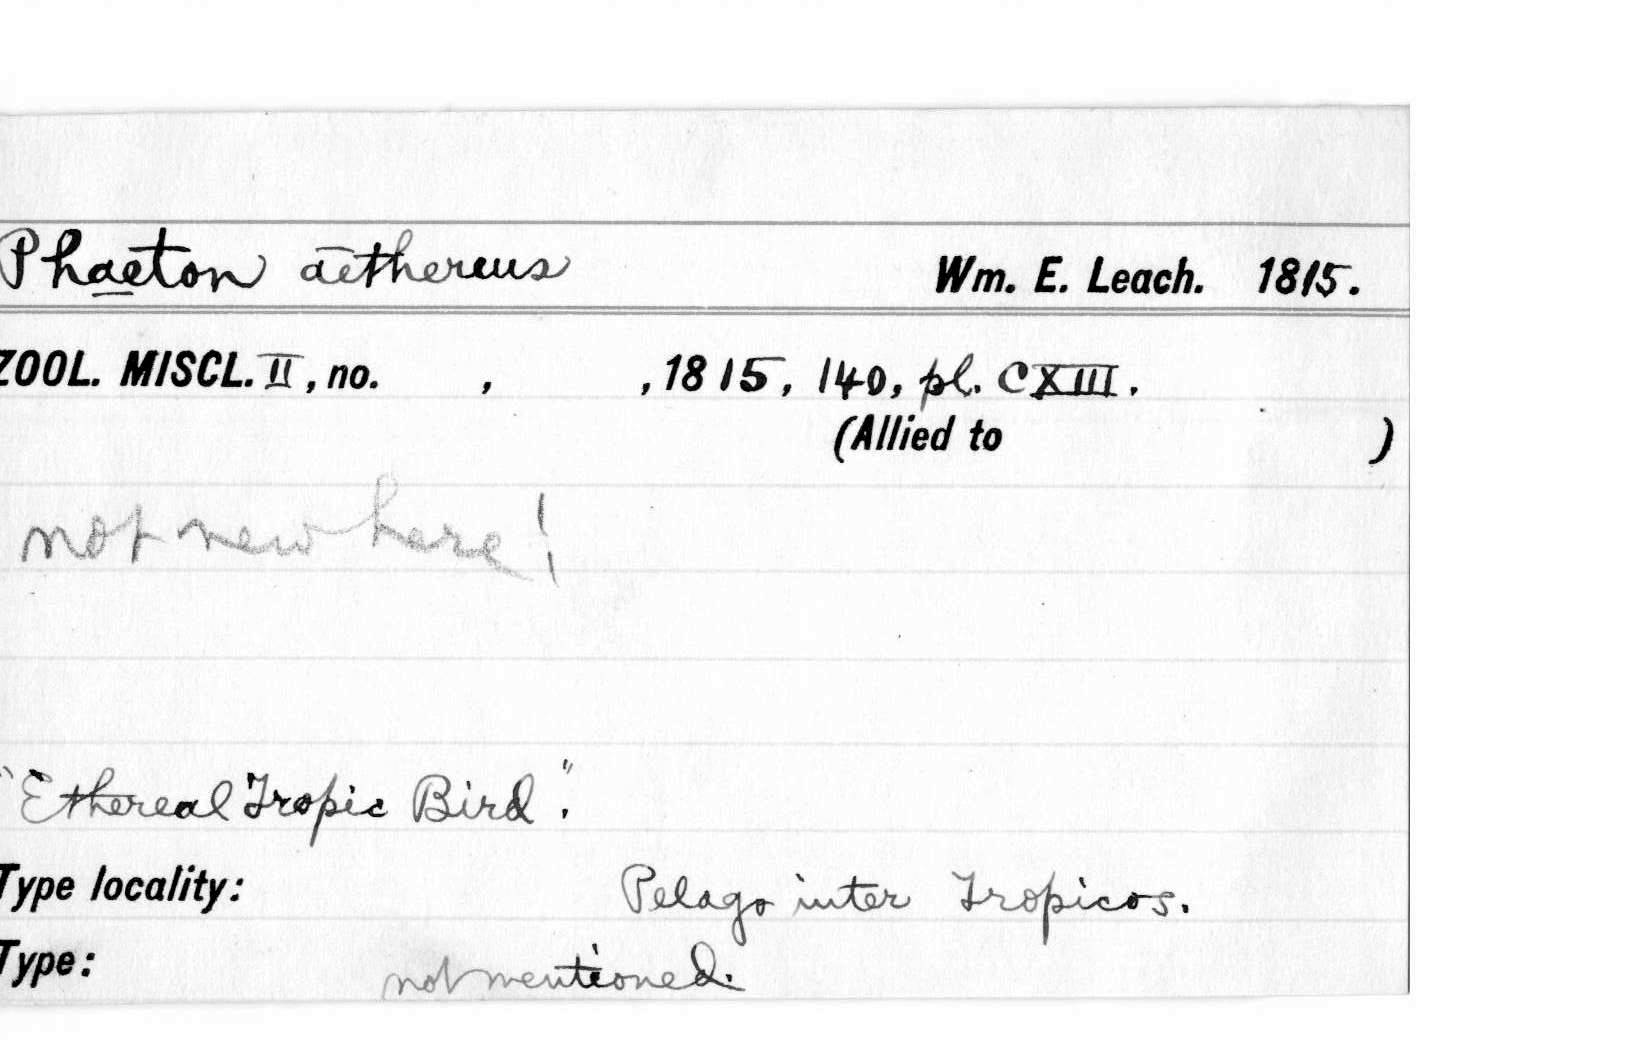 Phaeton aethereus Wm. E. Leach. 1815.
ZOOL. MISCL. II, no. , , 1815, 140, pl. CXIII.
(Allied to )
not new here!
"Ethereal Tropic Bird".
Type locality: Pelago inter Tropicos.
Type: not mentioned.